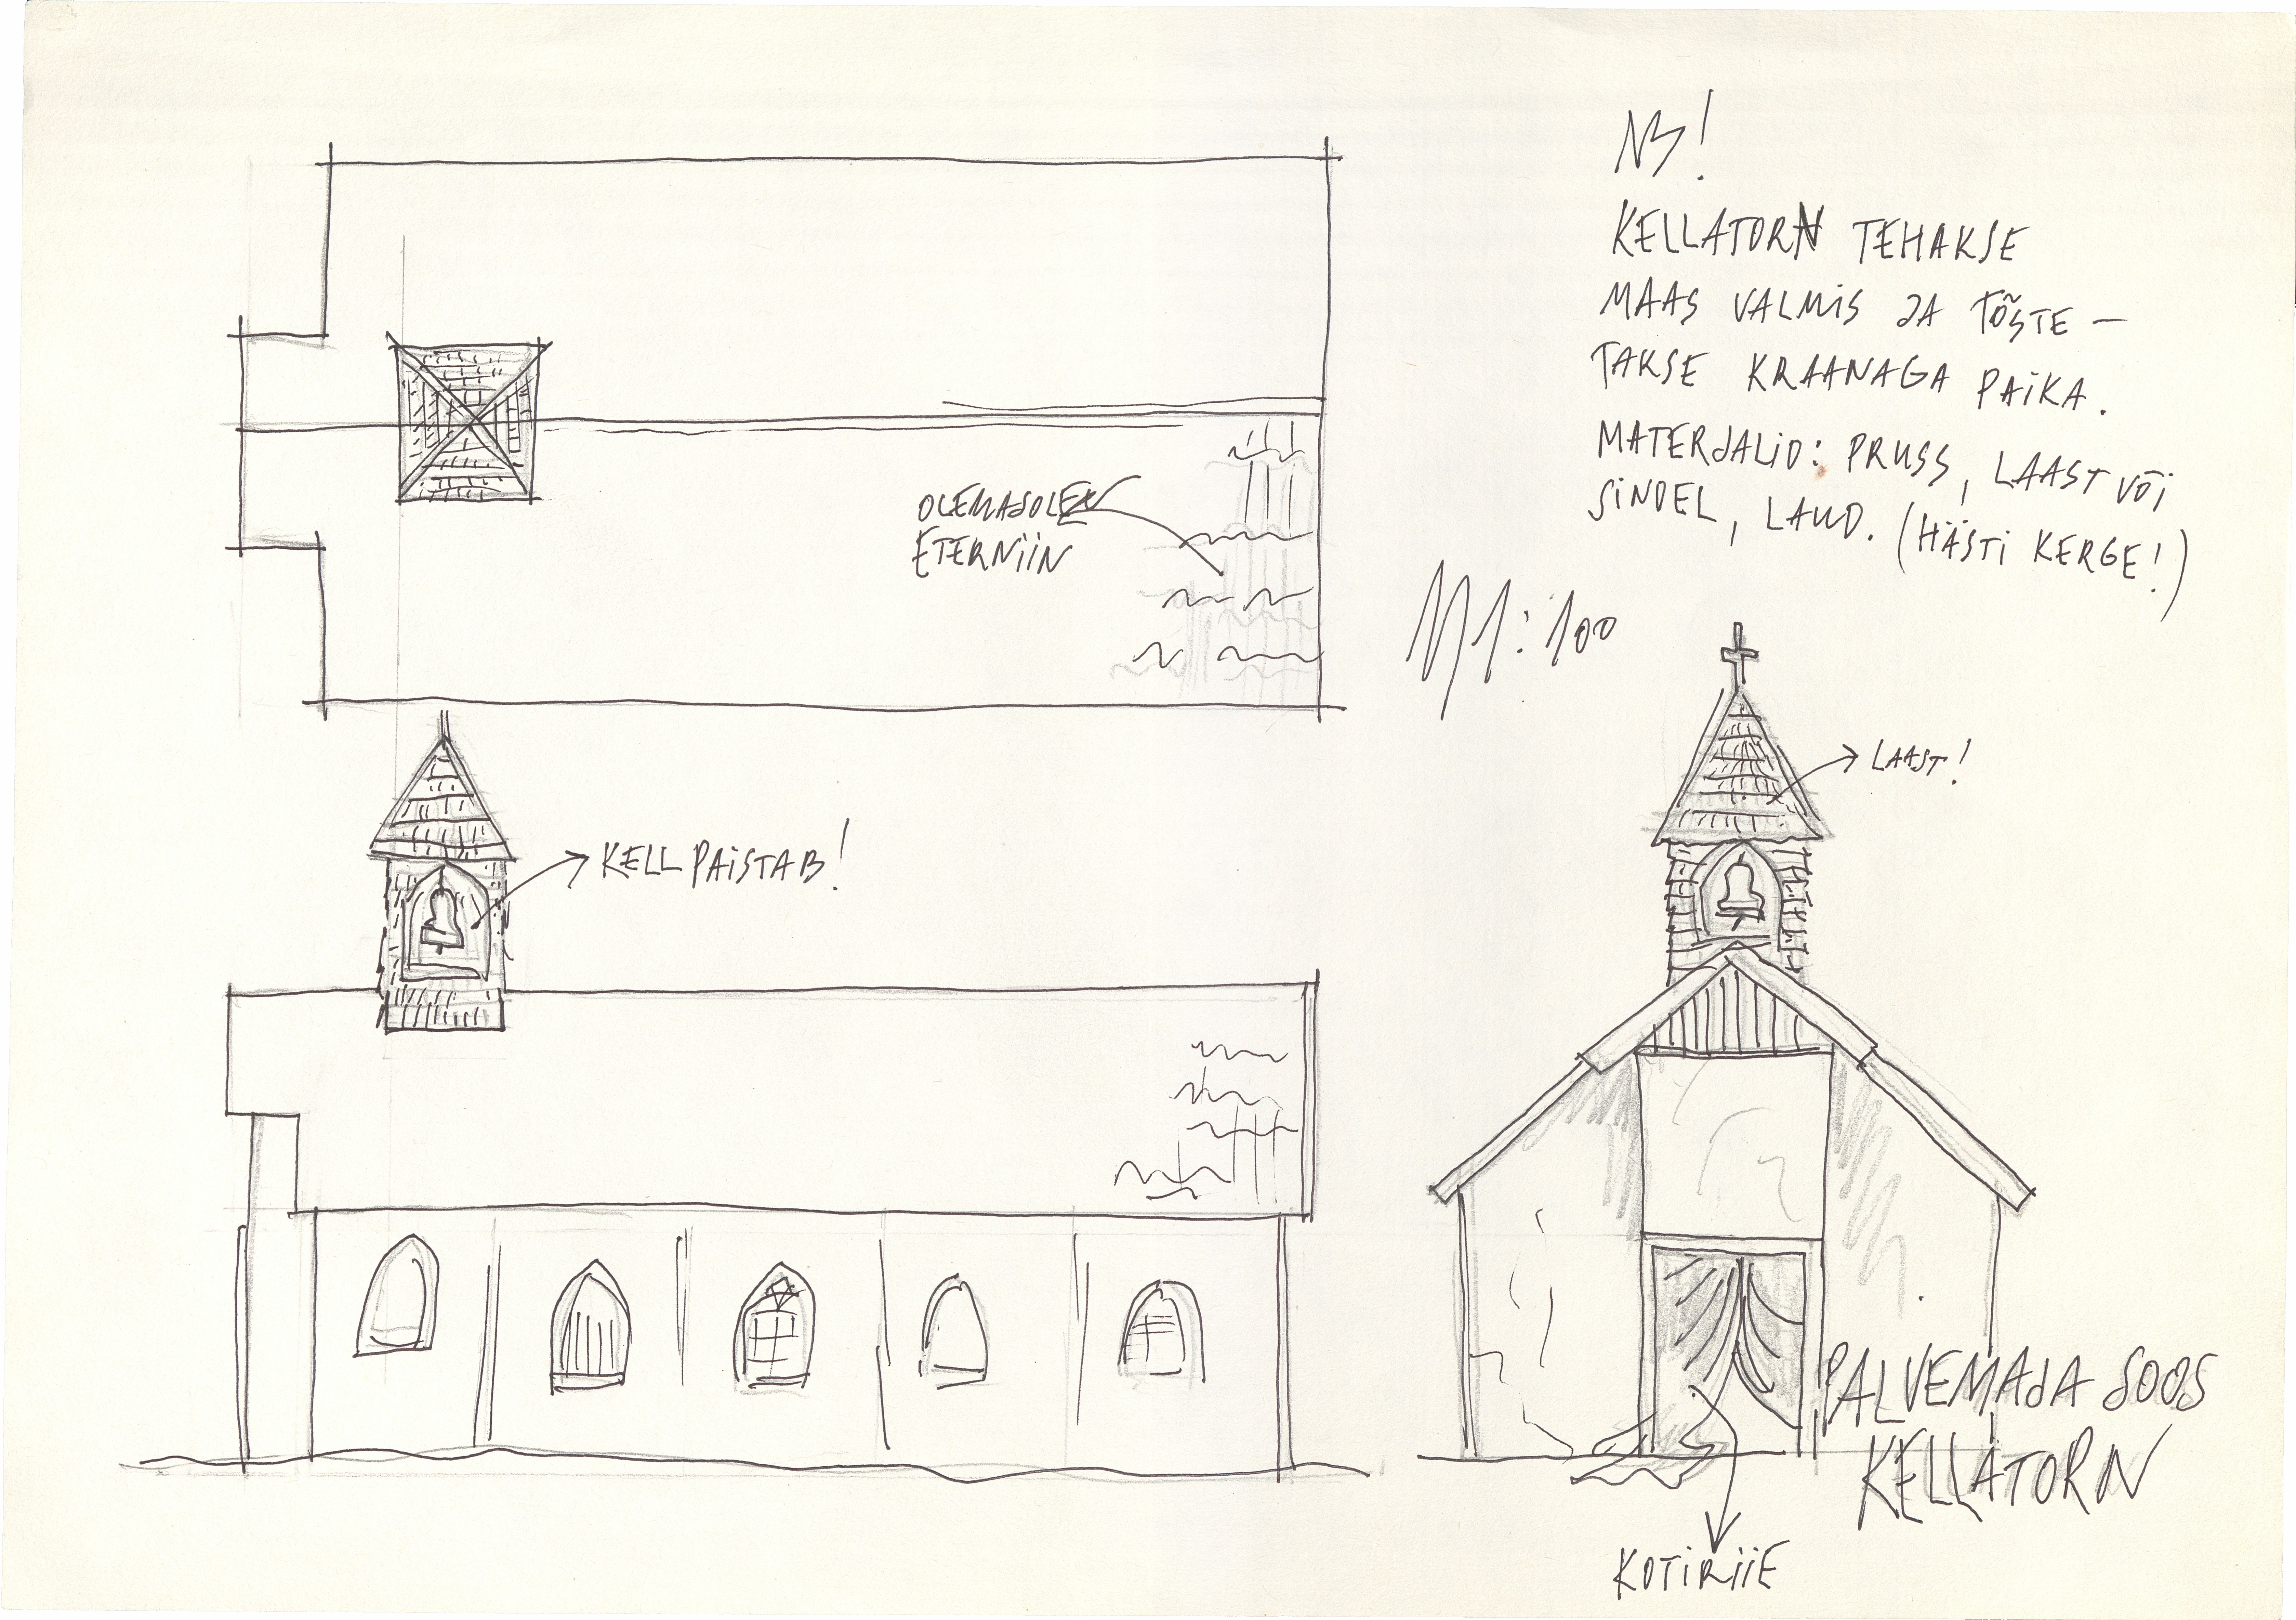 NB!
KELLATORN TEHAKSE
MAAS VALMIS JA TÕSTE-
TAKSE KRAANAGA PAIKA.
MATERJALID: PRUSS, LAAST VÕI
SINDEL, LAUD. (HÄSTI KERGE!)
M 1:100
OLEMASOLEV
ETERNIIN
LAAST!
KELL PAISTAB!
PALVEMAJA SOOS
KELLATORN
KOTIRIIE